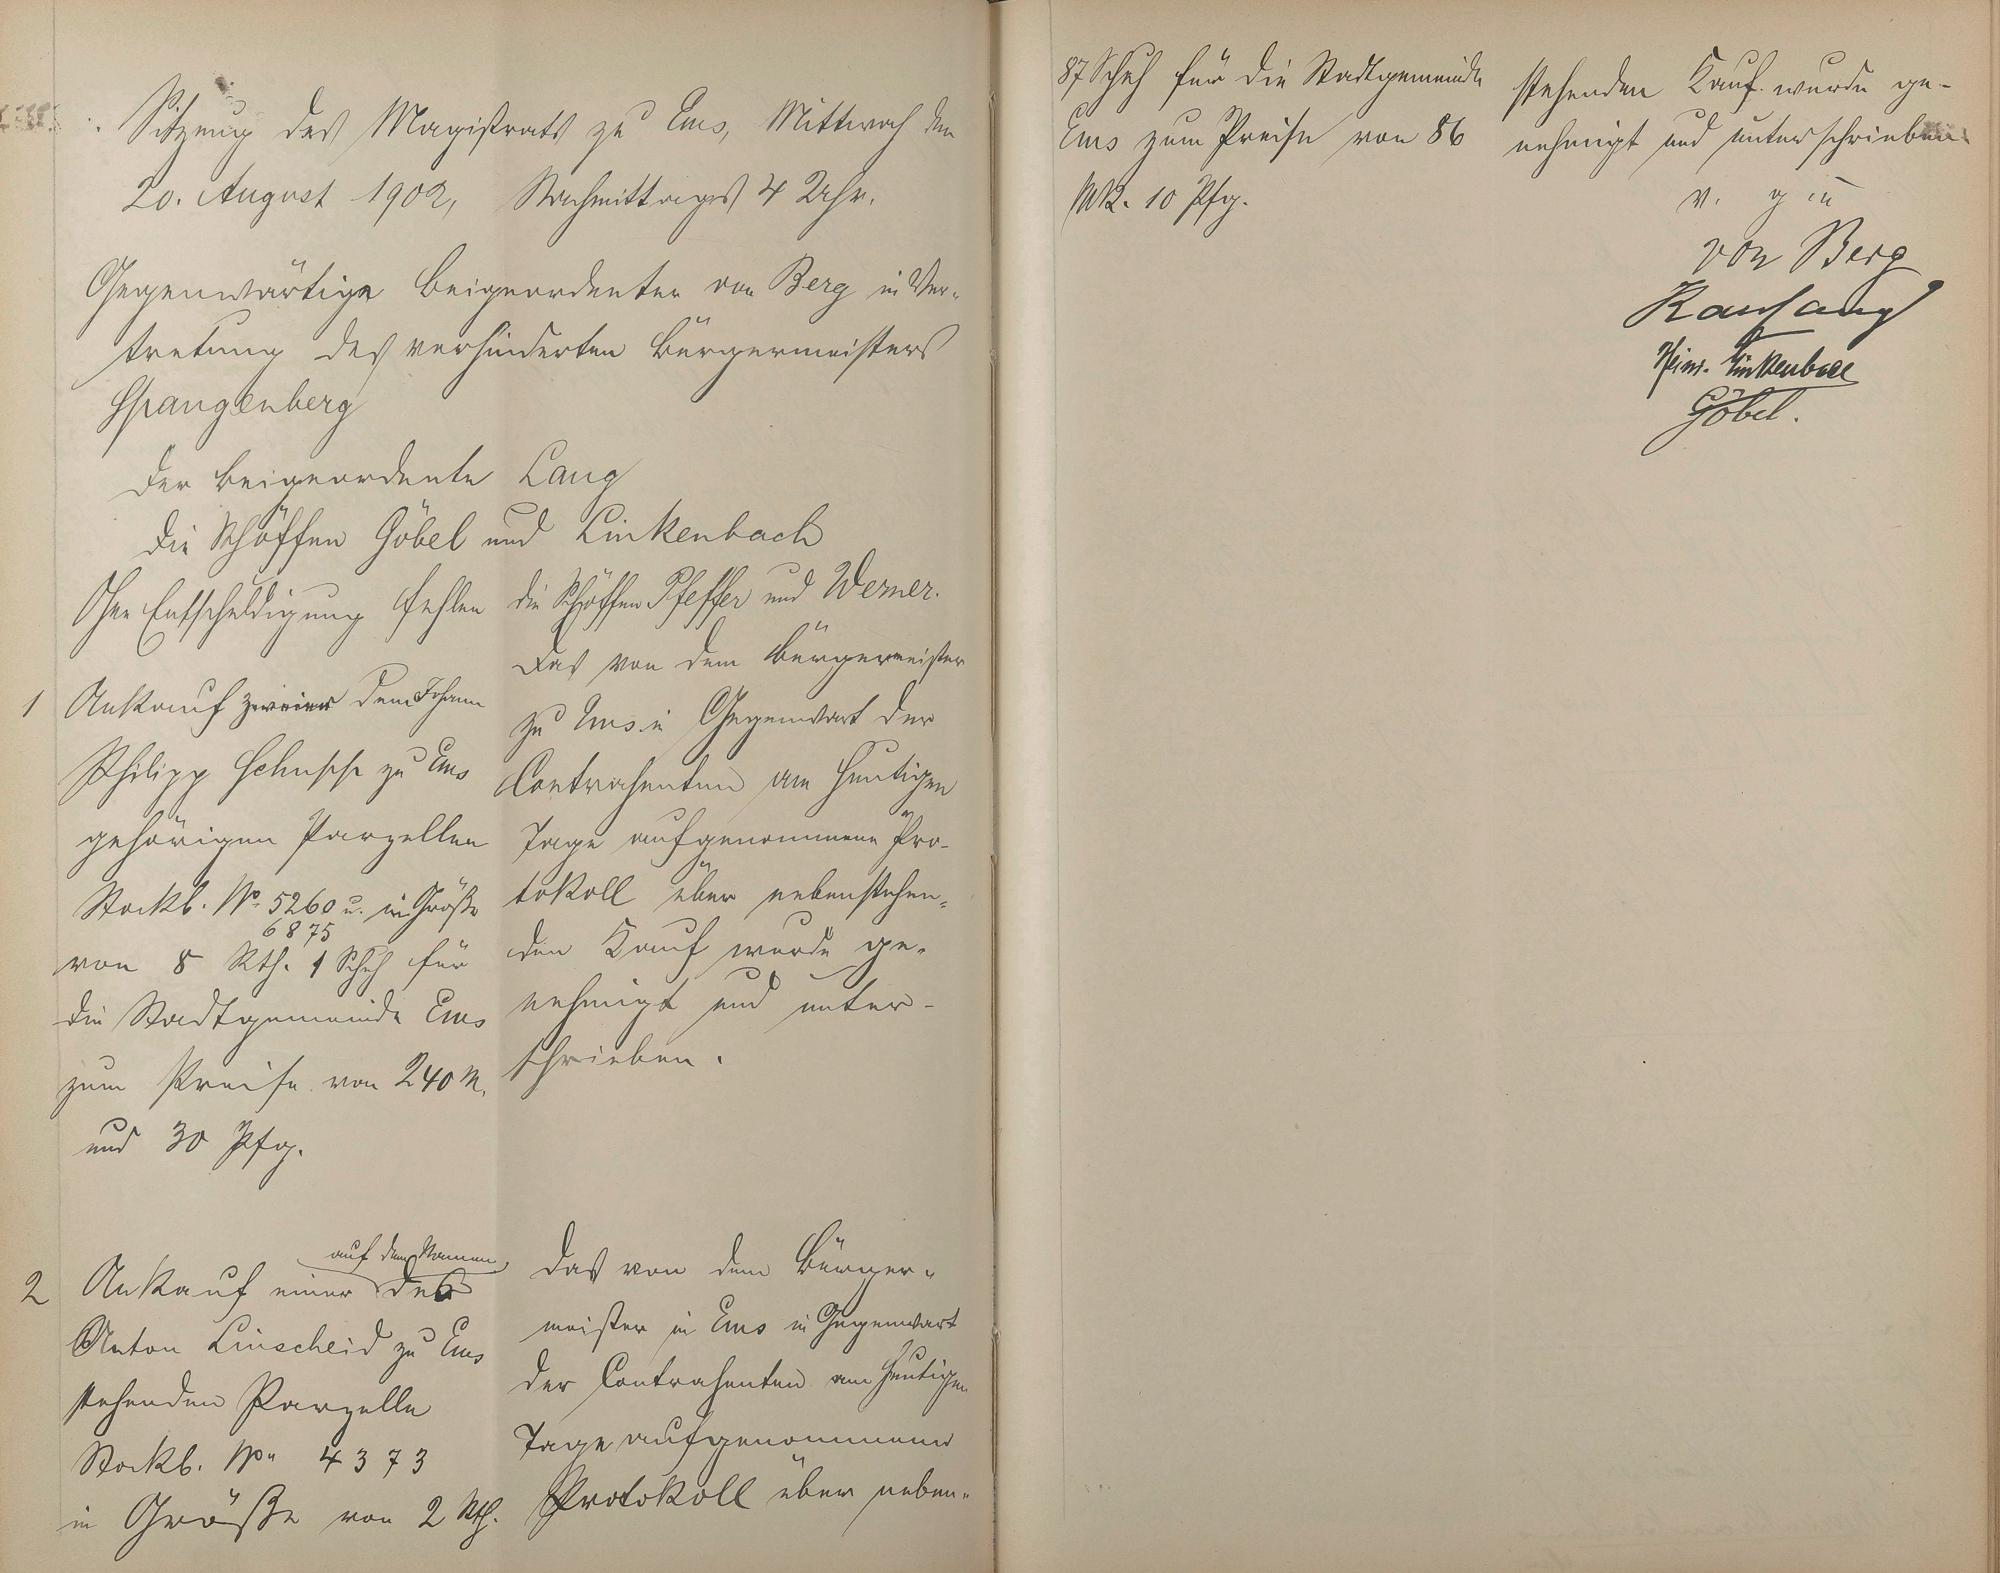 Sitzung des Magistrats zu Ems, Mittwoch den
20. August 1902, Nachmittags 4 Uhr.
Gegenwärtig Beigeordneter von Berg in Ver-
tretung des verhinderten Bürgermeisters
Spangenberg
der Beigeordnete Lang
die Schöffen Göbel und Linkenbach
Ohne Entschuldigung fehlen die Schöffen Pfeffer und Werner.
1 Ankauf zweier dem Johann
Philipp Schupp zu Ems
gehörigen Parzellen
Stockb. No 5260 u. in Größe
6875
von 8 Rth. 1 Schh für
die Stadtgemeinde Ems
zum Preise von 240 M.
und 30 Pfg.
Das von dem Bürgermeister
zu Ems in Gegenwart der
Contrahenten am heutigen
Tage aufgenommene Pro-
tokoll über nebenstehen-
den Kauf wurde ge-
nehmigt und unter-
schrieben.
2 Ankauf einer auf dem Namen des
Anton Linscheid zu Ems
stehenden Parzelle
Stockb. No 4373
in Größe von 2 Rth.
Das von dem Bürger-
meister in Ems in Gegenwart
der Contrahenten am heutigen
Tage aufgenommene
Protokoll über neben-
87 Schuh für die Stadtgemeinde
Ems zum Preise von 86
Mk. 10 Pfg.
stehenden Kauf wurde ge-
nehmigt und unterschrieben.
v. g u
von Berg
Heinr. Linkenbach
Göbel.